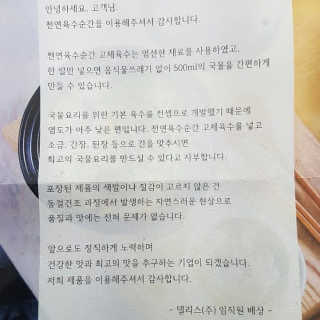 안녕하세요, 고객님.
천연육수순간을 이용해주셔서 감사합니다.
천연육수순간 고체육수는 엄선한 재료를 사용하였고,
한 알만 넣으면 음식물쓰레기 없이 500ml의 국물을 간편하게
만들 수 있습니다.
국물요리를 위한 기본 육수를 컨셉으로 개발했기 때문에
염도가 아주 낮은 편입니다. 천연육수순간 고체육수를 넣고
소금, 간장, 된장 등으로 간을 맞추시면
최고의 국물요리를 만드실 수 있다고 자부합니다.
포장된 제품의 색깔이나 질감이 고르지 않은 건
동결건조 과정에서 발생하는 자연스러운 현상으로
품질과 맛에는 전혀 문제가 없습니다.
앞으로도 정직하게 노력하며
건강한 맛과 최고의 맛을 추구하는 기업이 되겠습니다.
저희 제품을 이용해주셔서 감사합니다.
- 델리스(주) 임직원 배상 -